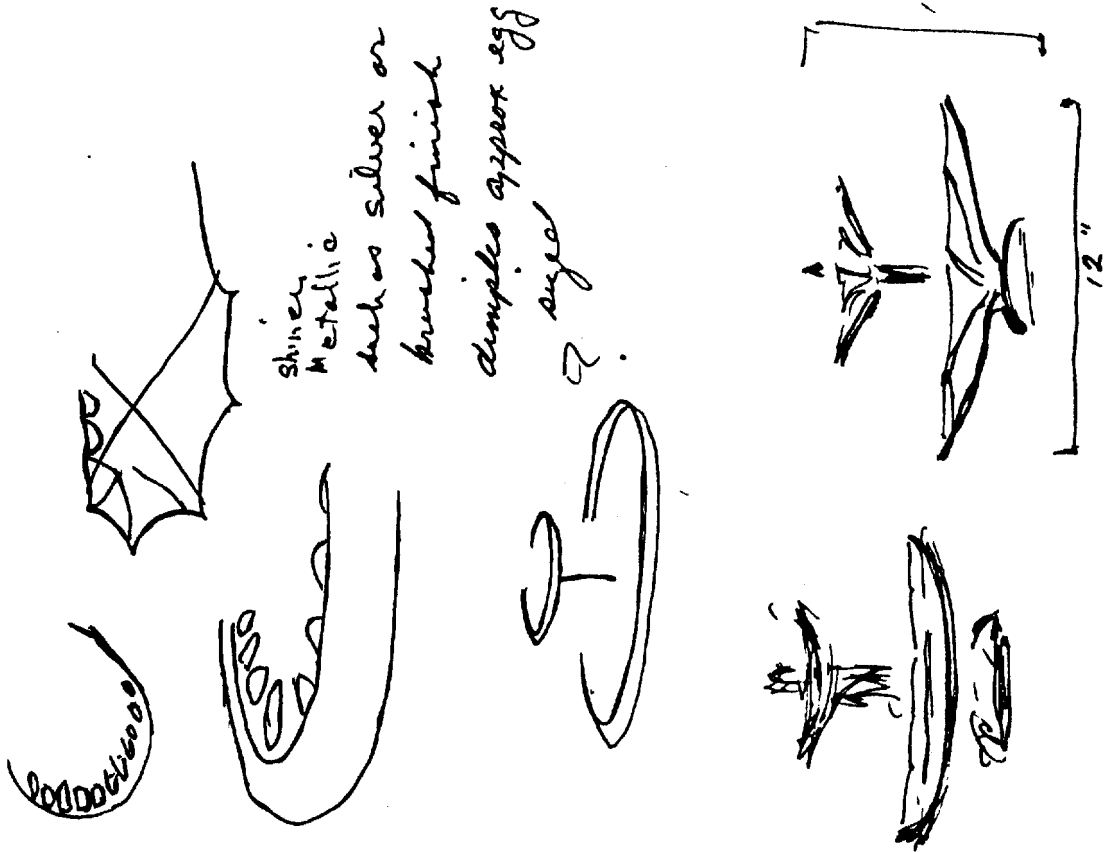 Shiney
Metallic
such as silver or
brushed finish
dimples approx egg
size
?
12"